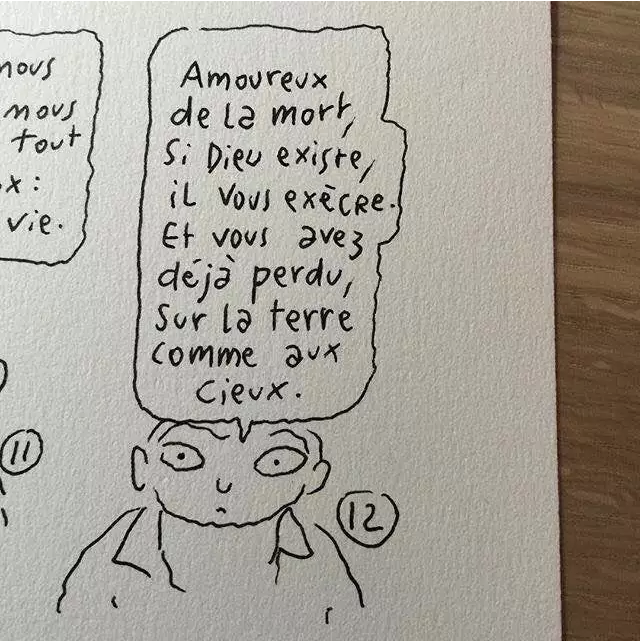 nous
nous
tout
x:
vie.
Amoureux
de la mort,
Si Dieu existe,
il vous exècre.
Et vous avez
déjà perdu,
sur la terre
comme aux
cieux.
11
12